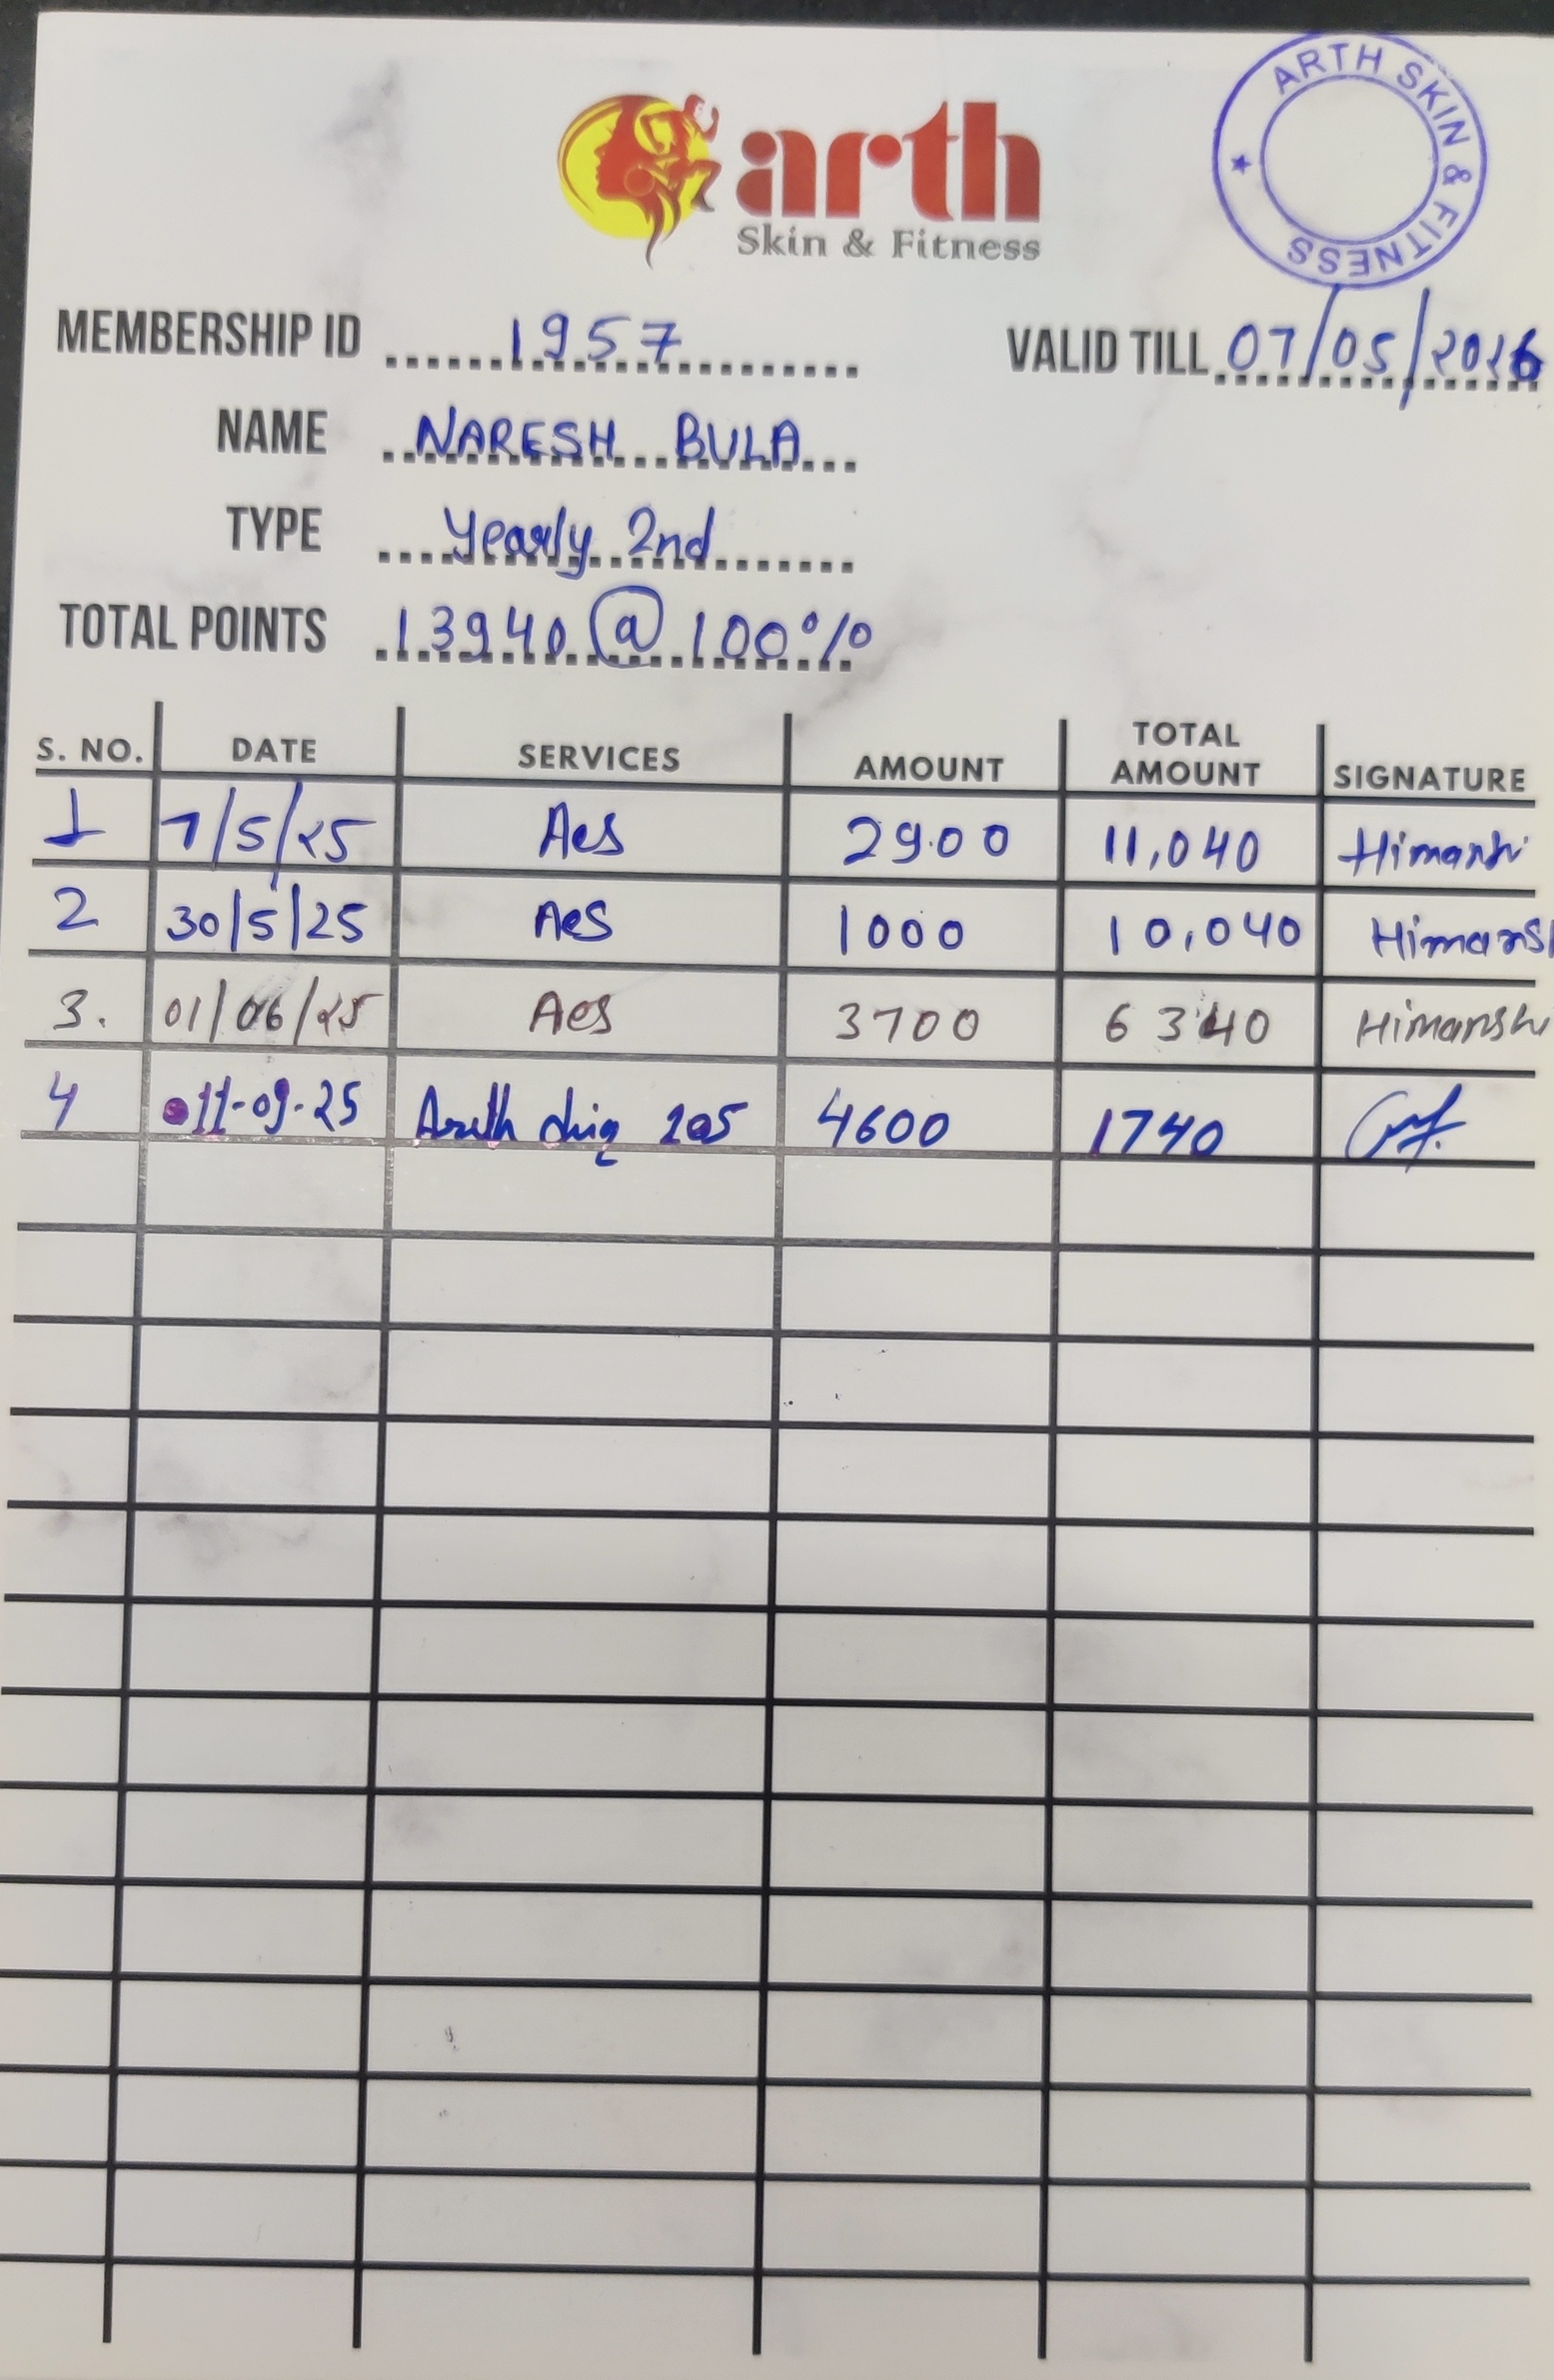 arth
Skin & Fitness
ARTH SKIN & FITNESS
MEMBERSHIP ID 1957
VALID TILL 07/05/2026
NAME NARESH BULA
TYPE Yearly 2nd
TOTAL POINTS 13940 @ 100%
S. NO. DATE SERVICES AMOUNT TOTAL AMOUNT SIGNATURE
1 7/5/25 Aes 2900 11,040 Himanshi
2 30/5/25 Aes 1000 10,040 Himansh
3. 01/06/25 Aes 3700 6340 Himanshi
4 11-09-25 4600 1740